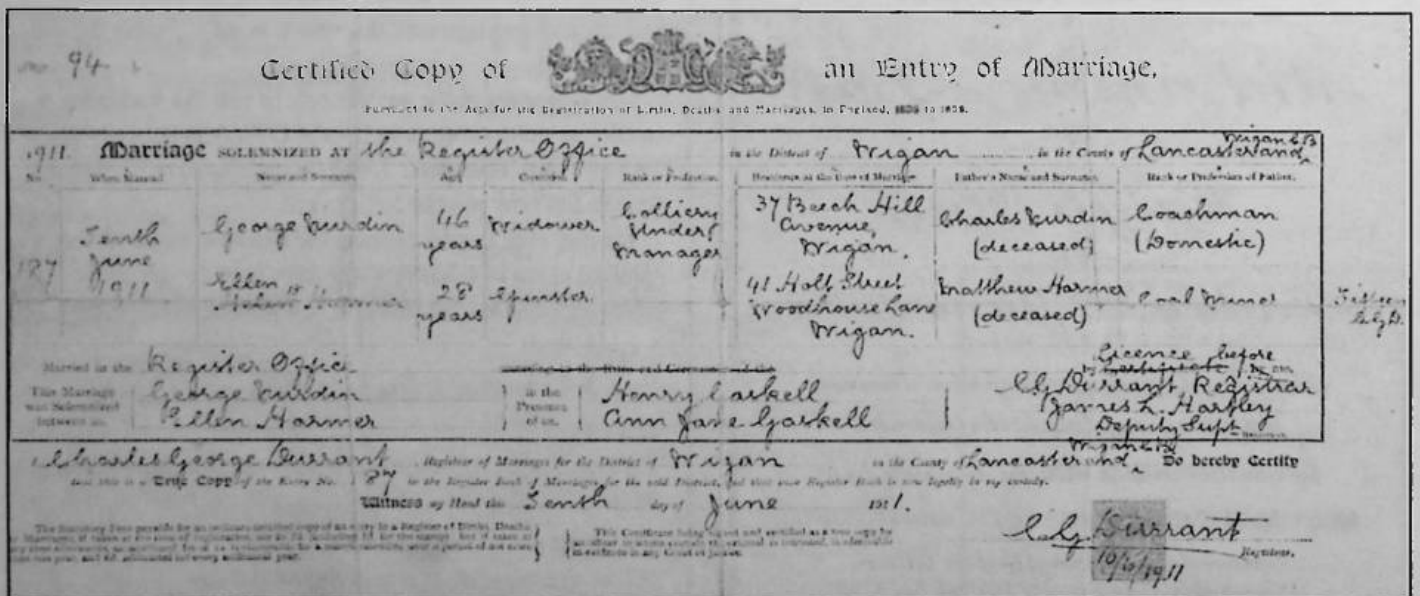 94
Certified Copy of an Entry of Marriage.
Pursuant to the Acts for the Registration of Births, Deaths and Marriages, in England, 1836 to 1898.
1911. Marriage SOLEMNIZED AT the Register Office in the District of Wigan in the County of Lancaster and Wigan C B
No. When Married Name and Surname Age Condition Rank or Profession Residence at the time of Marriage Father's Name and Surname Rank or Profession of Father
187 Tenth June 1911 George 46 years Widower Colliery Under Manager 37 Beech Hill Avenue, Wigan. Charles (deceased) Coachman (Domestic)
Ellen Harmer 28 years Spinster 41 Holt Street Woodhouse Lane Wigan. Matthew Harmer (deceased) Coal Miner
Married in the Register Office Licence before
This Marriage was Solemnized between us, George in the Presence of us, Henry Gaskell C G Durrant Registrar
Ellen Harmer Ann Jane Gaskell James L. Hartley
Deputy Supt
I Charles George Durrant, Registrar of Marriages for the District of Wigan in the County of Lancaster and Wigan C B Do hereby Certify
that this is a True Copy of the Entry No. 187 in the Register Book of Marriages for the said District, and that such Register Book is now legally in my custody.
Witness my Hand this Tenth day of June 1911.
This Certificate being signed and certified as a true copy by
C. G. Durrant
Registrar.
10/6/1911